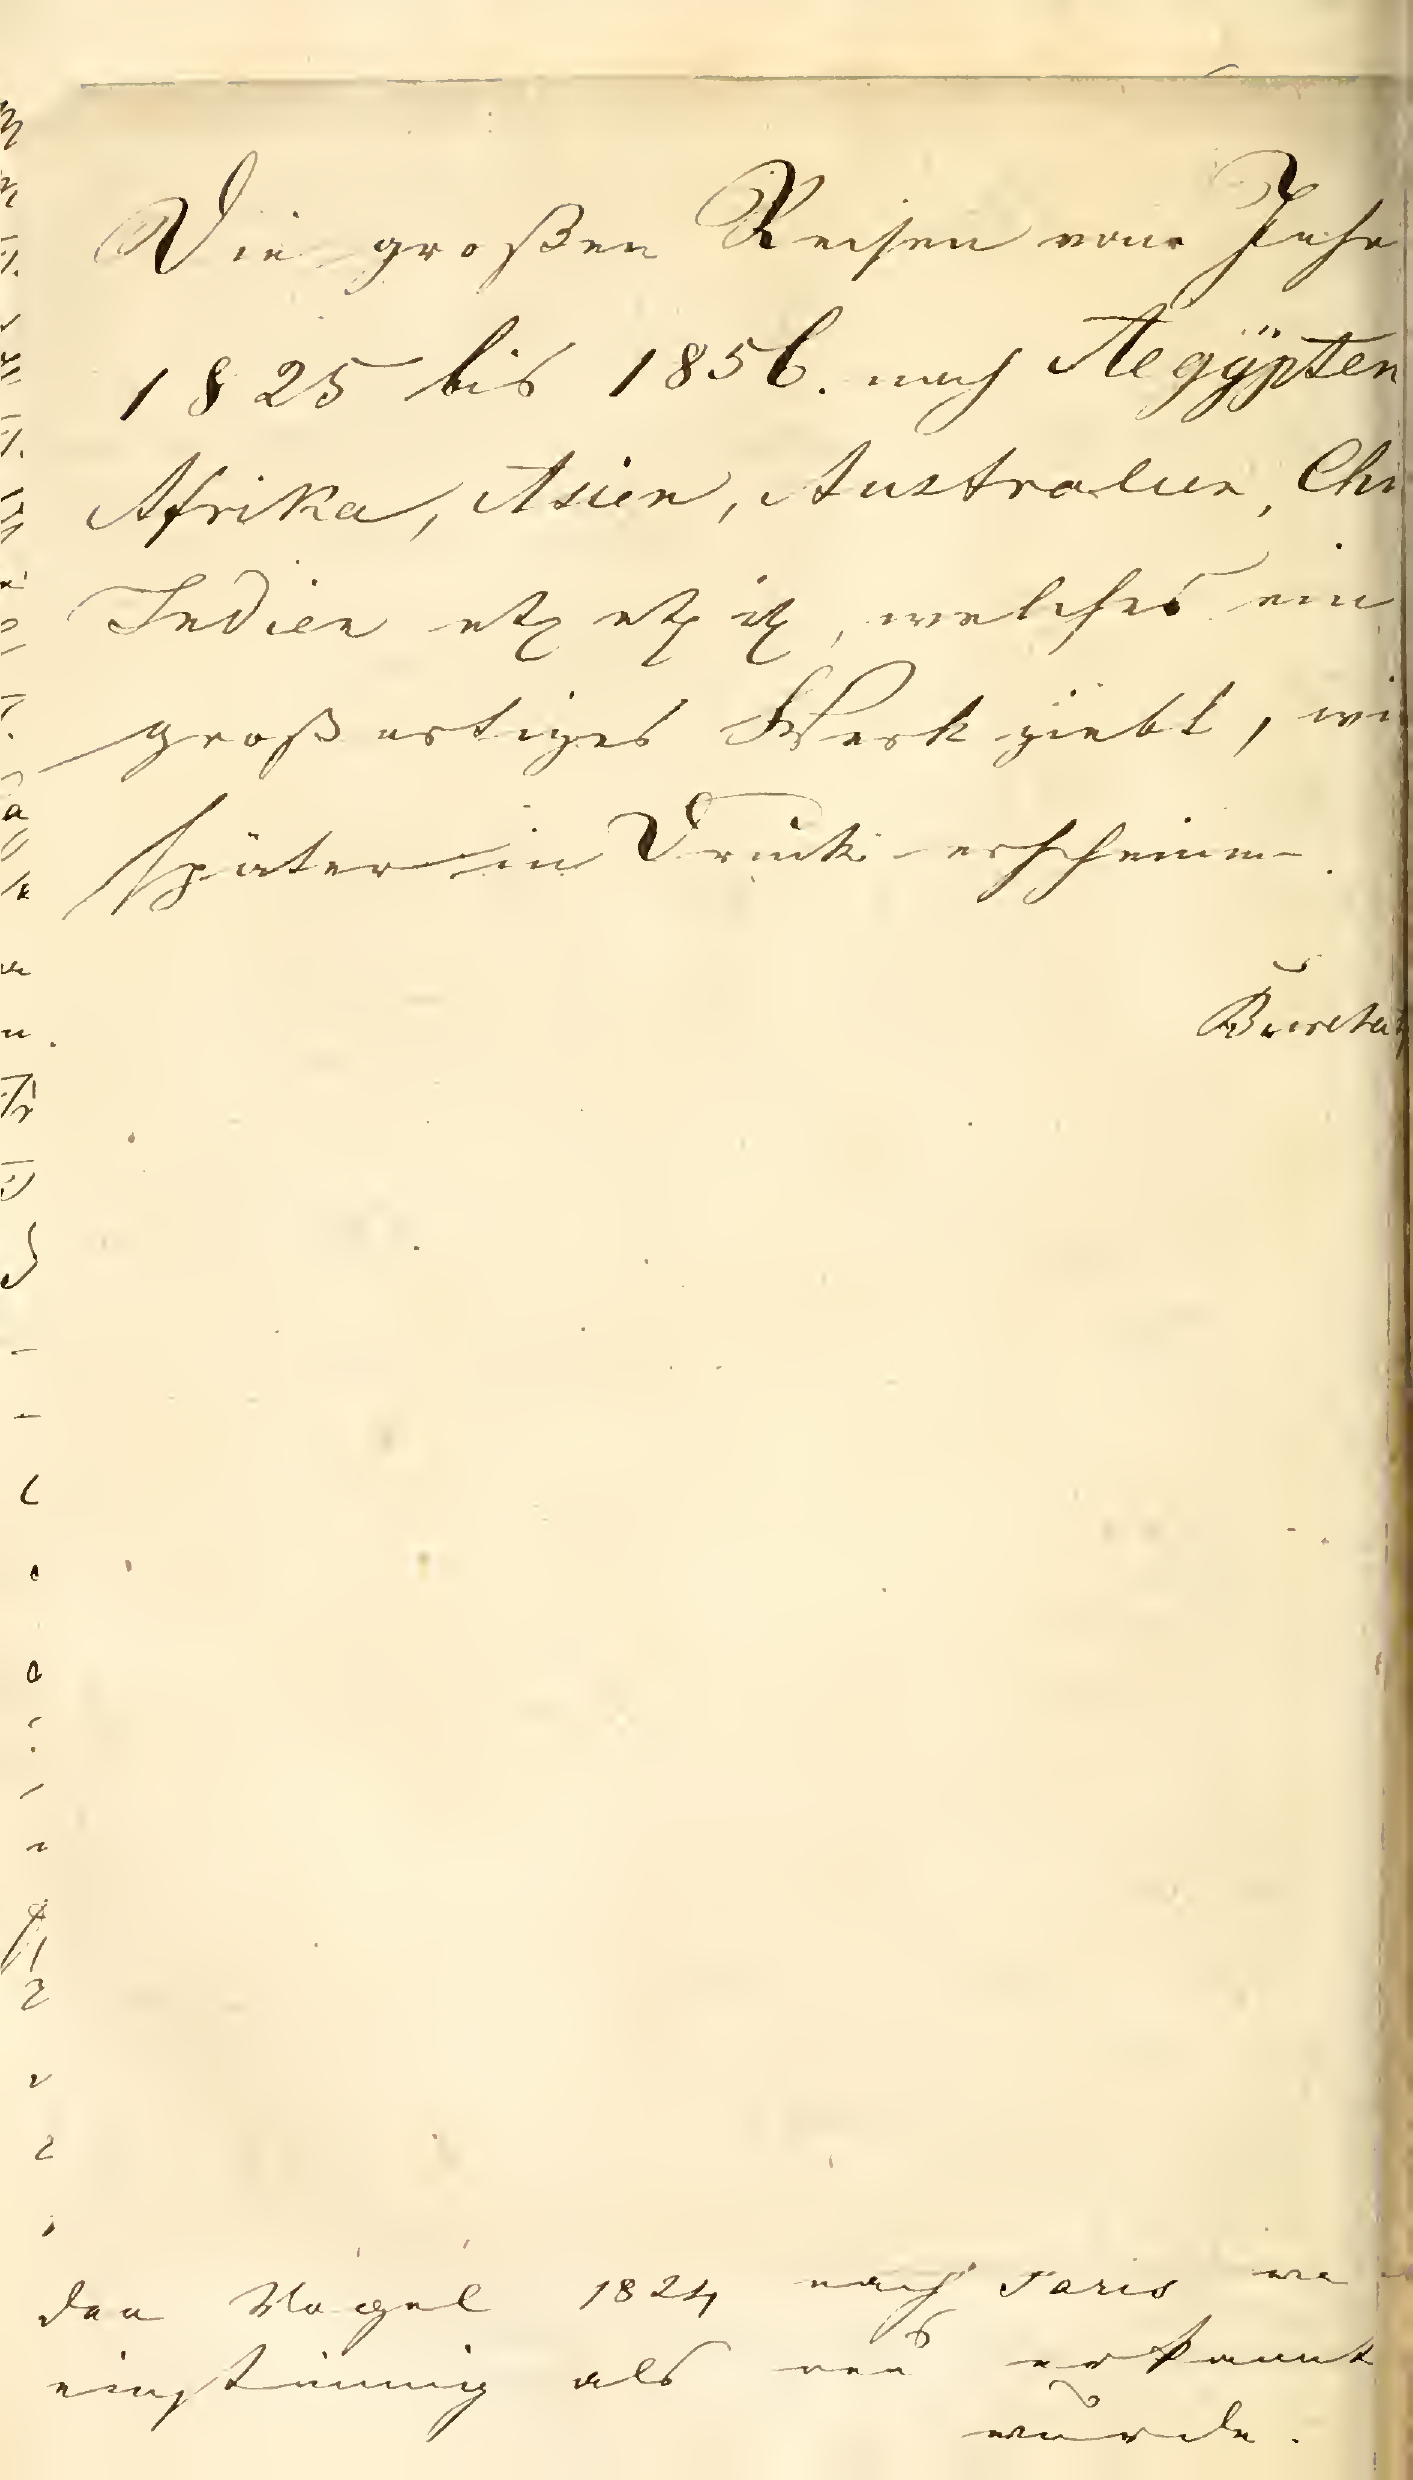 Die großen Reisen vom Jahr
1825 bis 1856. nach Aegÿpten
Afrika, Asien, Australien, Chi
Indien etz etz etz, welches ein
großartiges Werk giebt, wi
später in Druck erscheinen.
den Vogel 1824 nach Paris wo
einstimmig als neu erkannt
wurde.